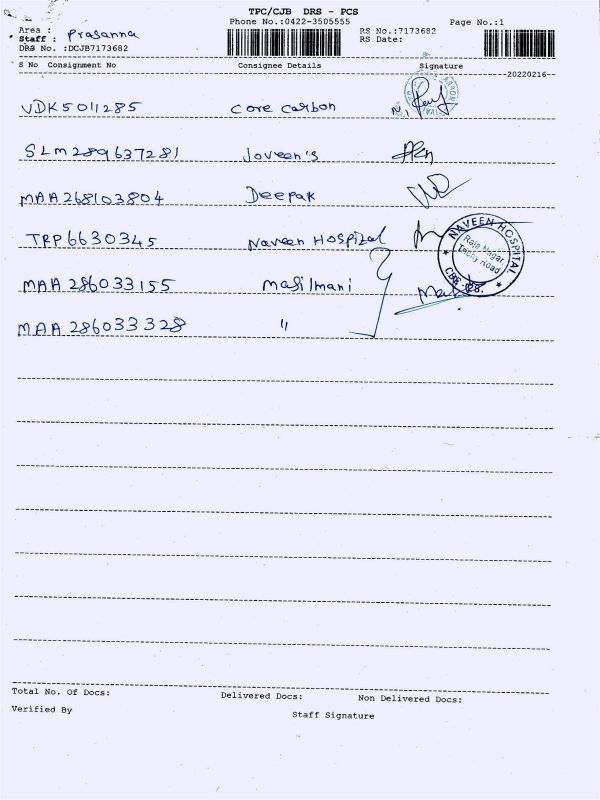 TPC/CJB DRS - PCS
Phone No.:0422-3505555 Page No.:1
Area :
Staff : Prasanna RS No.:7173682
DRS No. :DCJB7173682 RS Date:
S No Consignment No Consignee Details Signature
20220216
VDK5011285 Core Carbon
SLM289637281 Joveen's
MAA268103804 Deepak
TRP6630345 Naveen Hospital
NAVEEN HOSPITAL
Raja Nagar,
Tachy Road
MAA 286033155 Masilmani
MAA 286033328 "
Total No. Of Docs: Delivered Docs: Non Delivered Docs:
Verified By Staff Signature